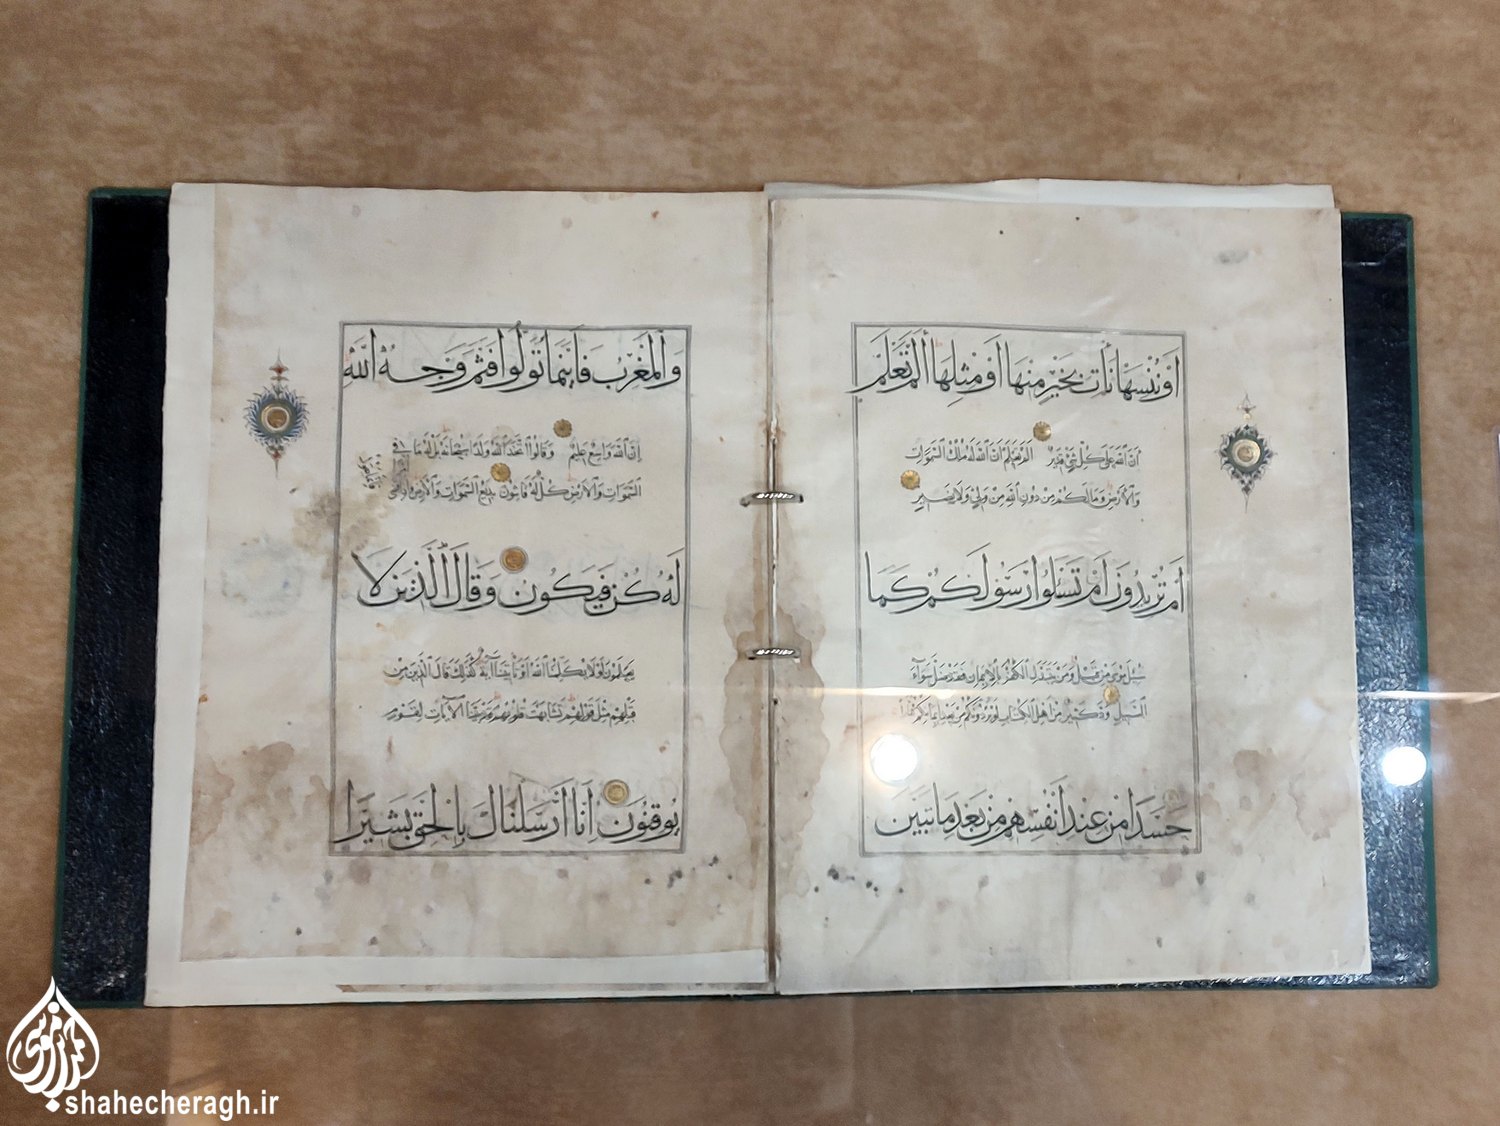 أَوْ نُنْسِهَا نَأْتِ بِخَيْرٍ مِنْهَا أَوْ مِثْلِهَا أَلَمْ تَعْلَمْ
أن الله على كل شيء قدير ألم تعلم أن الله له ملك السموات
والأرض وما لكم من دون الله من ولي ولا نصير
أَمْ تُرِيدُونَ أَنْ تَسْئَلُوا رَسُولَكُمْ كَمَا
سئل موسى من قبل ومن يتبدل الكفر بالإيمان فقد ضل سواء
السبيل ود كثير من أهل الكتاب لو يردونكم من بعد إيمانكم كفارا
حَسَدًا مِنْ عِنْدِ أَنْفُسِهِمْ مِنْ بَعْدِ مَا تَبَيَّنَ
وَالْمَغْرِبُ فَأَيْنَمَا تُوَلُّوا فَثَمَّ وَجْهُ اللَّهِ
إن الله واسع عليم وقالوا اتخذ الله ولدا سبحانه بل له ما في
السموات والأرض كل له قانتون بديع السموات والأرض وإذا قضى
لَهُ كُنْ فَيَكُونُ وَقَالَ الَّذِينَ لَا
يعلمون لولا يكلمنا الله أو تأتينا آية كذلك قال الذين من
قبلهم مثل قولهم تشابهت قلوبهم قد بينا الآيات لقوم
يُوقِنُونَ إِنَّا أَرْسَلْنَاكَ بِالْحَقِّ بَشِيرًا
shahecheragh.ir